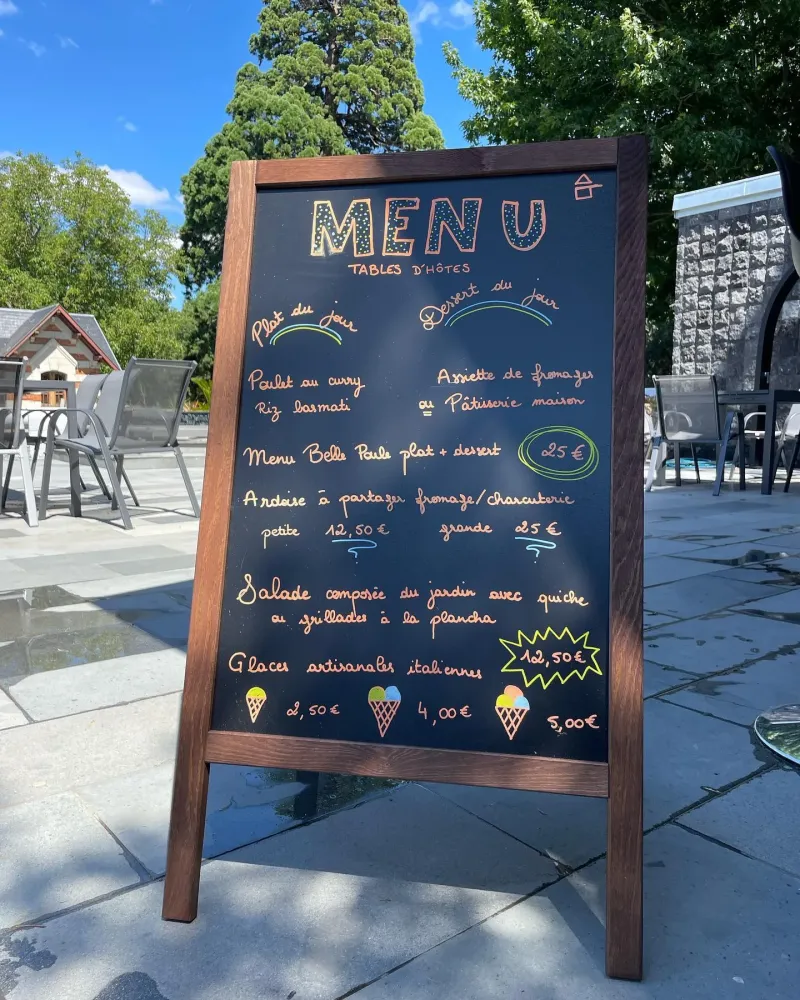 MENU
TABLES D'HÔTES
Plat du jour
Dessert du jour
Poulet au curry
Riz basmati
Assiette de fromages
ou Pâtisserie maison
Menu Belle Poule plat + dessert 25 €
Ardoise à partager fromage/charcuterie
petite 12,50 € grande 25 €
Salade composée du jardin avec quiche
ou grillades à la plancha
12,50 €
Glaces artisanales italiennes
2,50 € 4,00 € 5,00 €